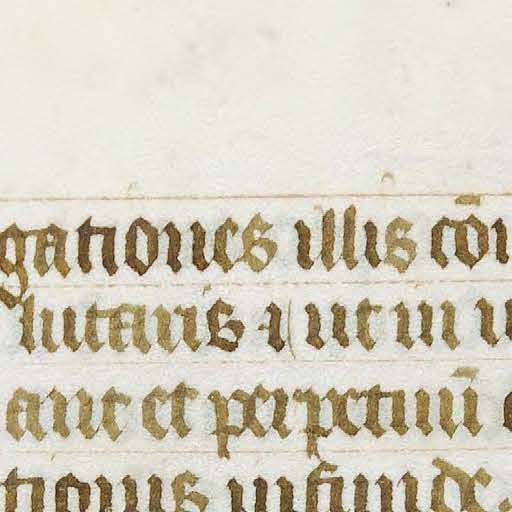 gationes illis cōn
lutaris ⁊ ut in u
ane et perpetuū
tionis infunde